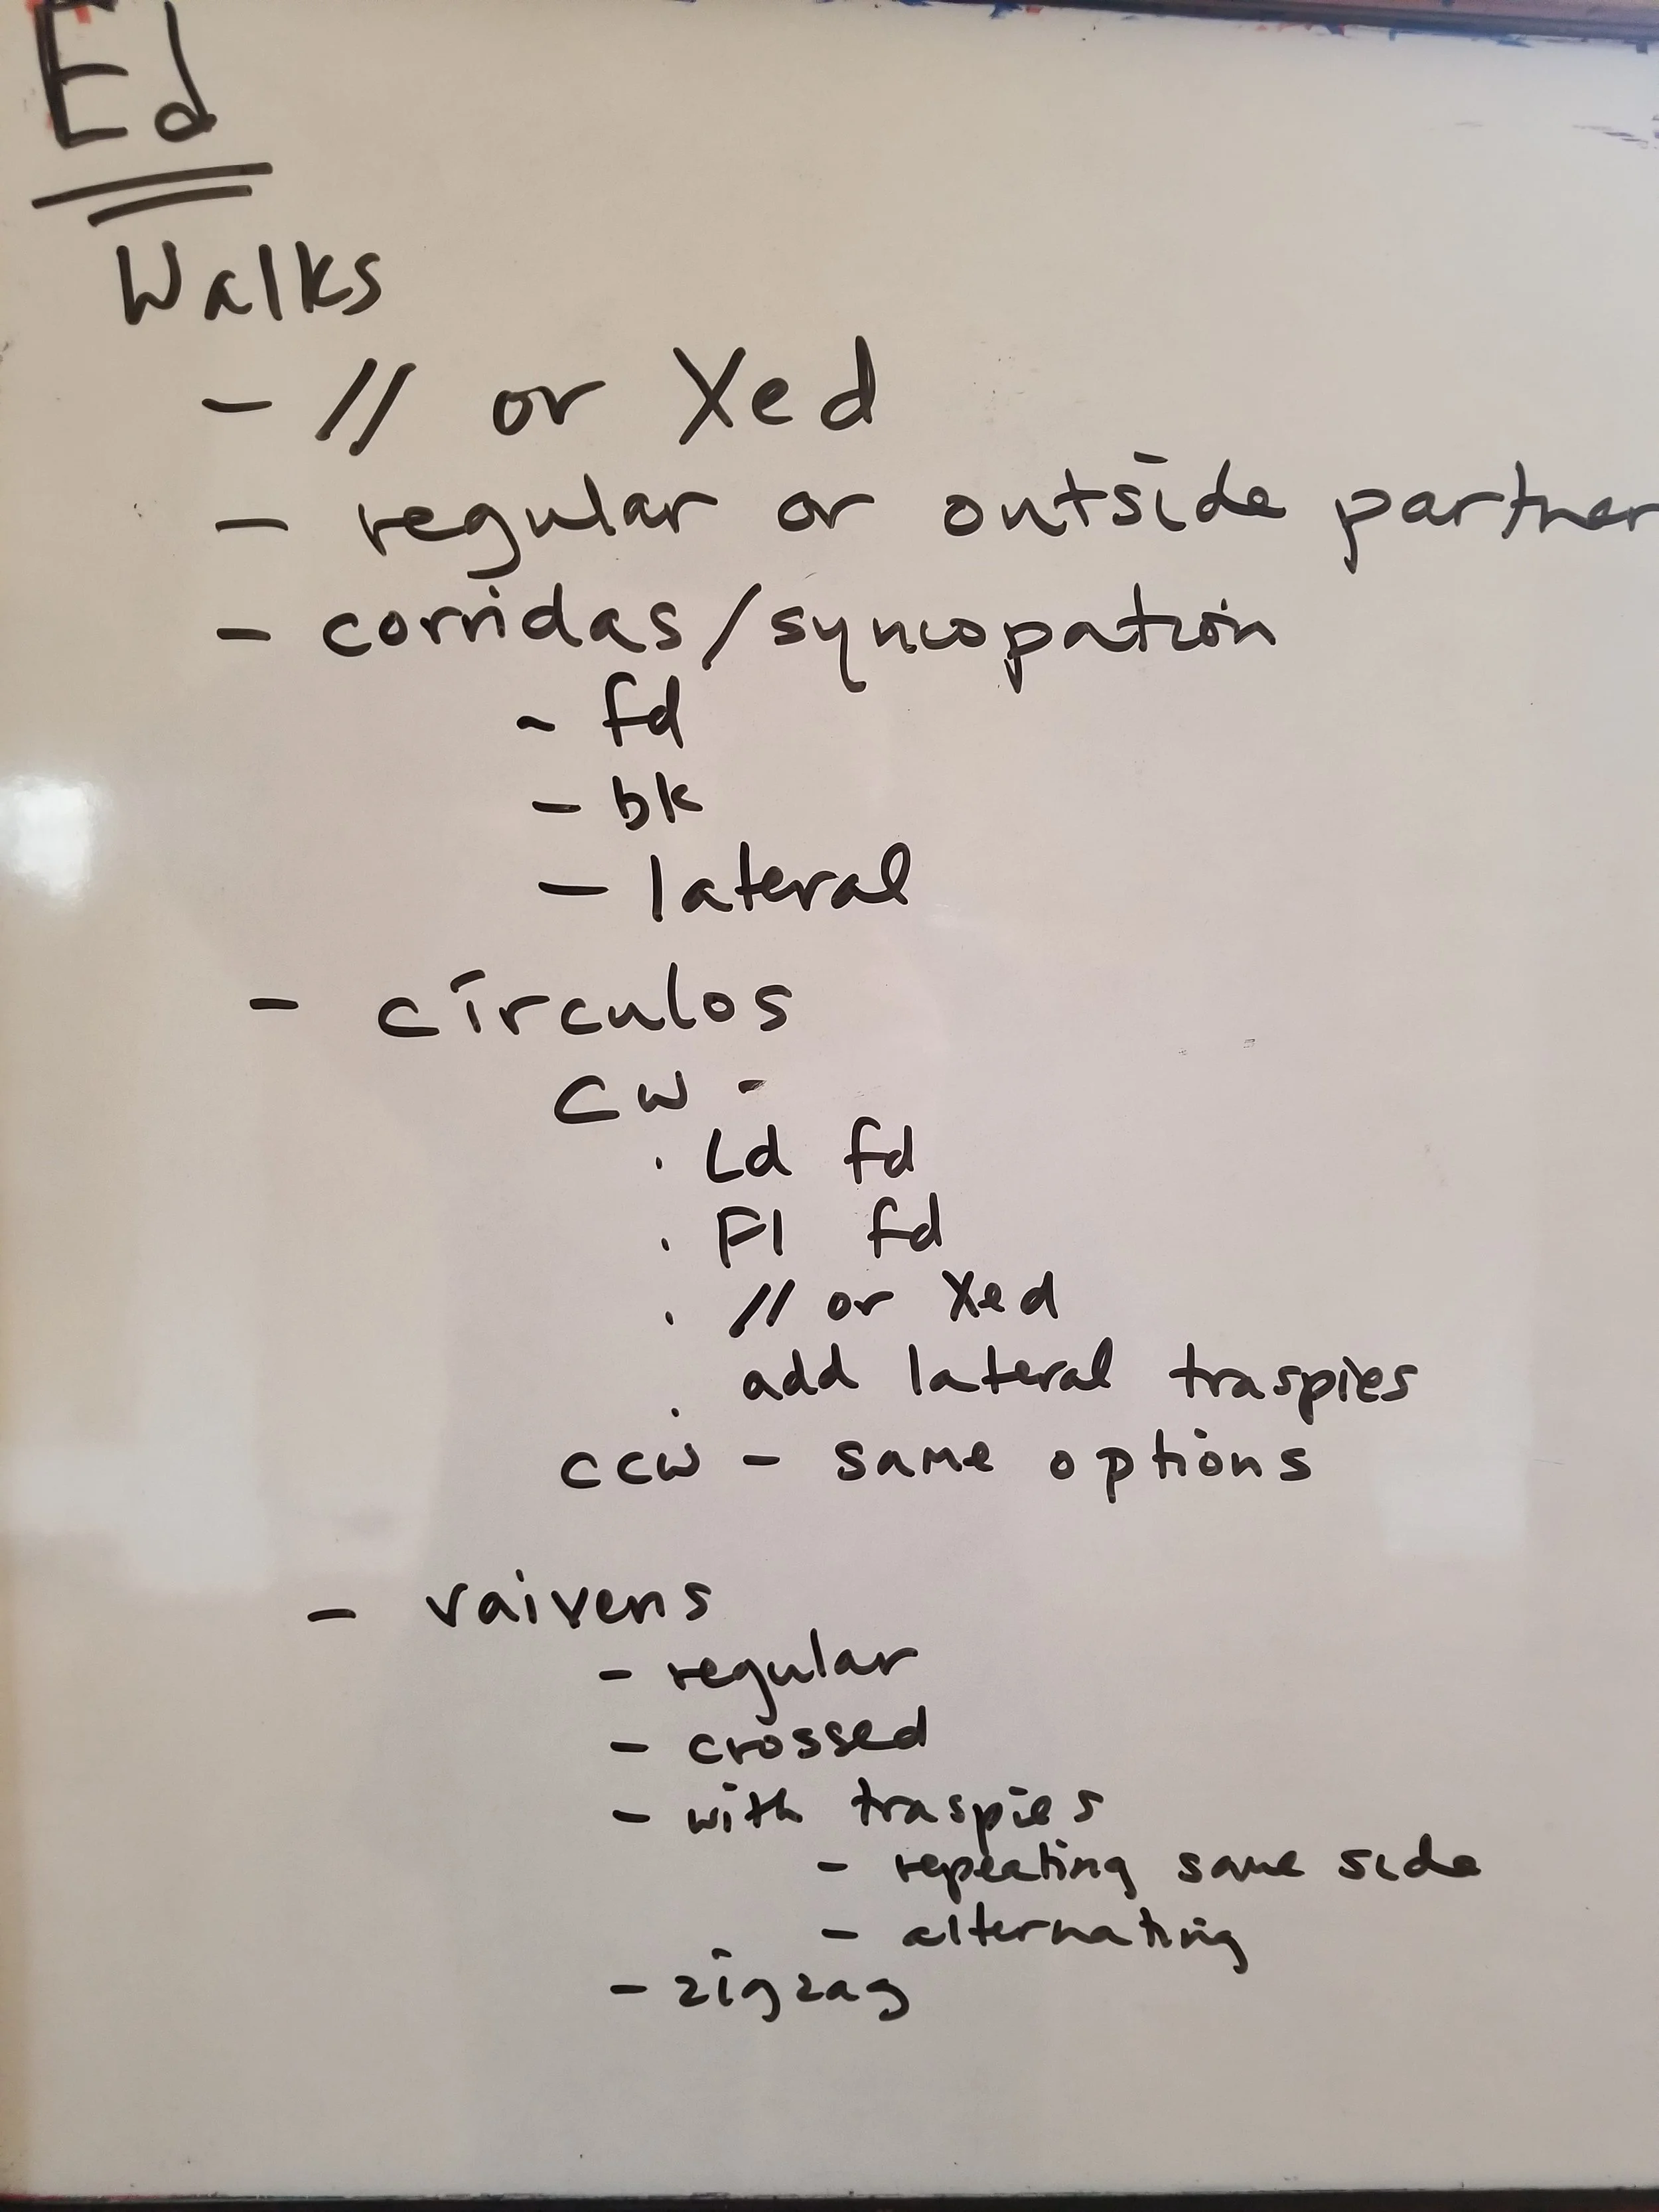 Ed
Walks
- // or Xed
- regular or outside partner
- corridas/syncopation
- fd
- bk
- lateral
- círculos
CW -
· Ld fd
· Fl fd
· // or Xed
· add lateral traspies
CCW - same options
- vaivens
- regular
- crossed
- with traspies
- repeating same side
- alternating
- zigzag